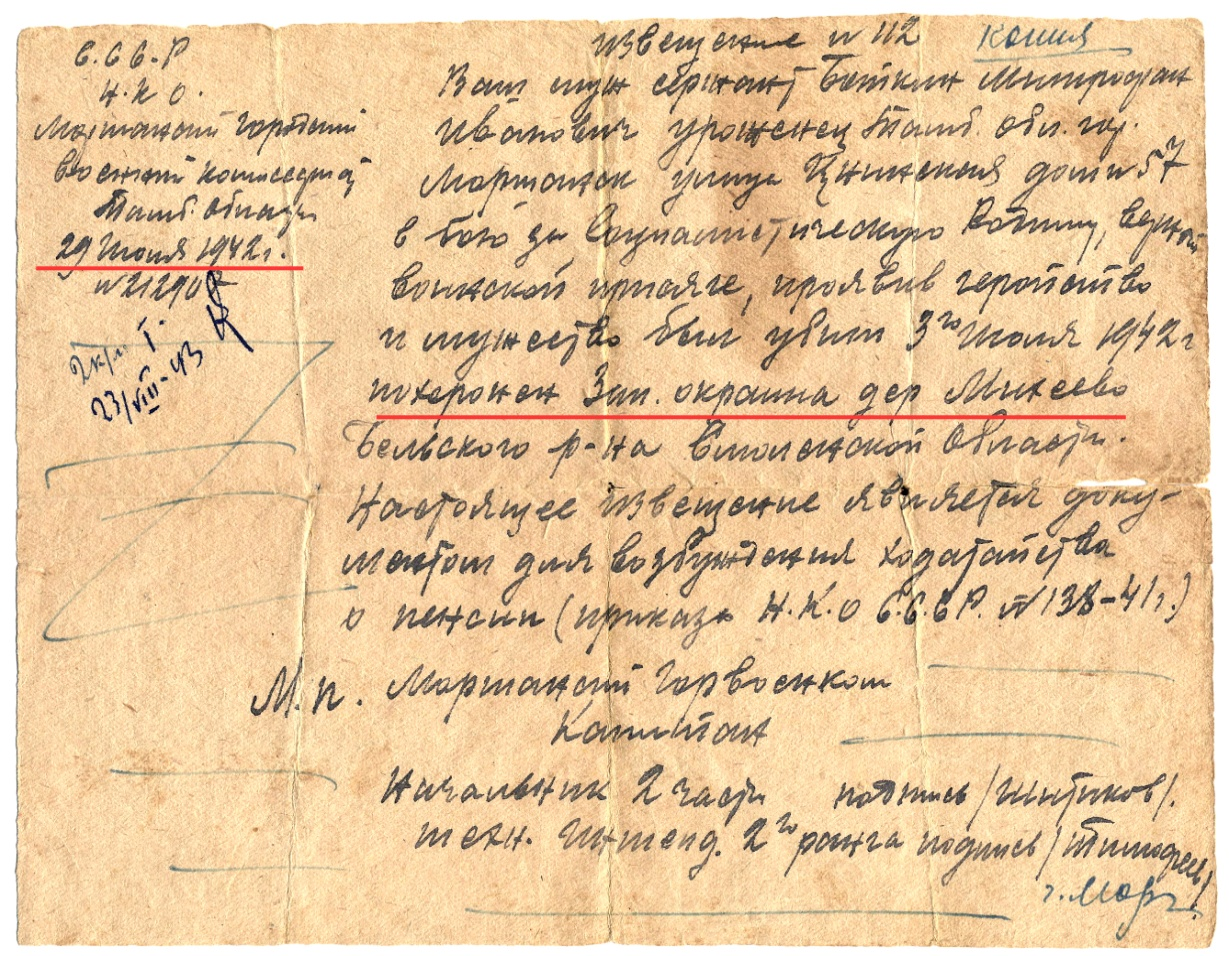 С.С.С.Р
Н.К О.
Моршанский Городской
Военный Комиссариат
Тамб. Области
29 Июля 1942 г.
N 21290
23/VIII-43
Извещение N 112 Копия
Ваш муж сержант Беткин Митрофан
Иванович уроженец Тамб. обл. гор.
Моршанск улица Цнинская дом N 57
в бою за Социалистическую Родину, верный
воинской присяге, проявив геройство
и мужество был убит 3го Июля 1942 г
похоронен Зап. окраина дер Михеево
Бельского р-на Смоленской Области.
Настоящее извещение является доку-
ментом для возбуждения ходатайства
о пенсии (приказ Н.К.О С.С.С Р. N 138-41 г.)
М.п. Моршанский Горвоенком
Капитан
Начальник 2 части подпись /Шитиков/.
техн. Интенд. 2го ранга подпись /Тимофеев/